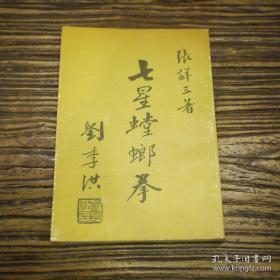 張詳三著
七星螳螂拳
劉季洪
孔夫子旧书网